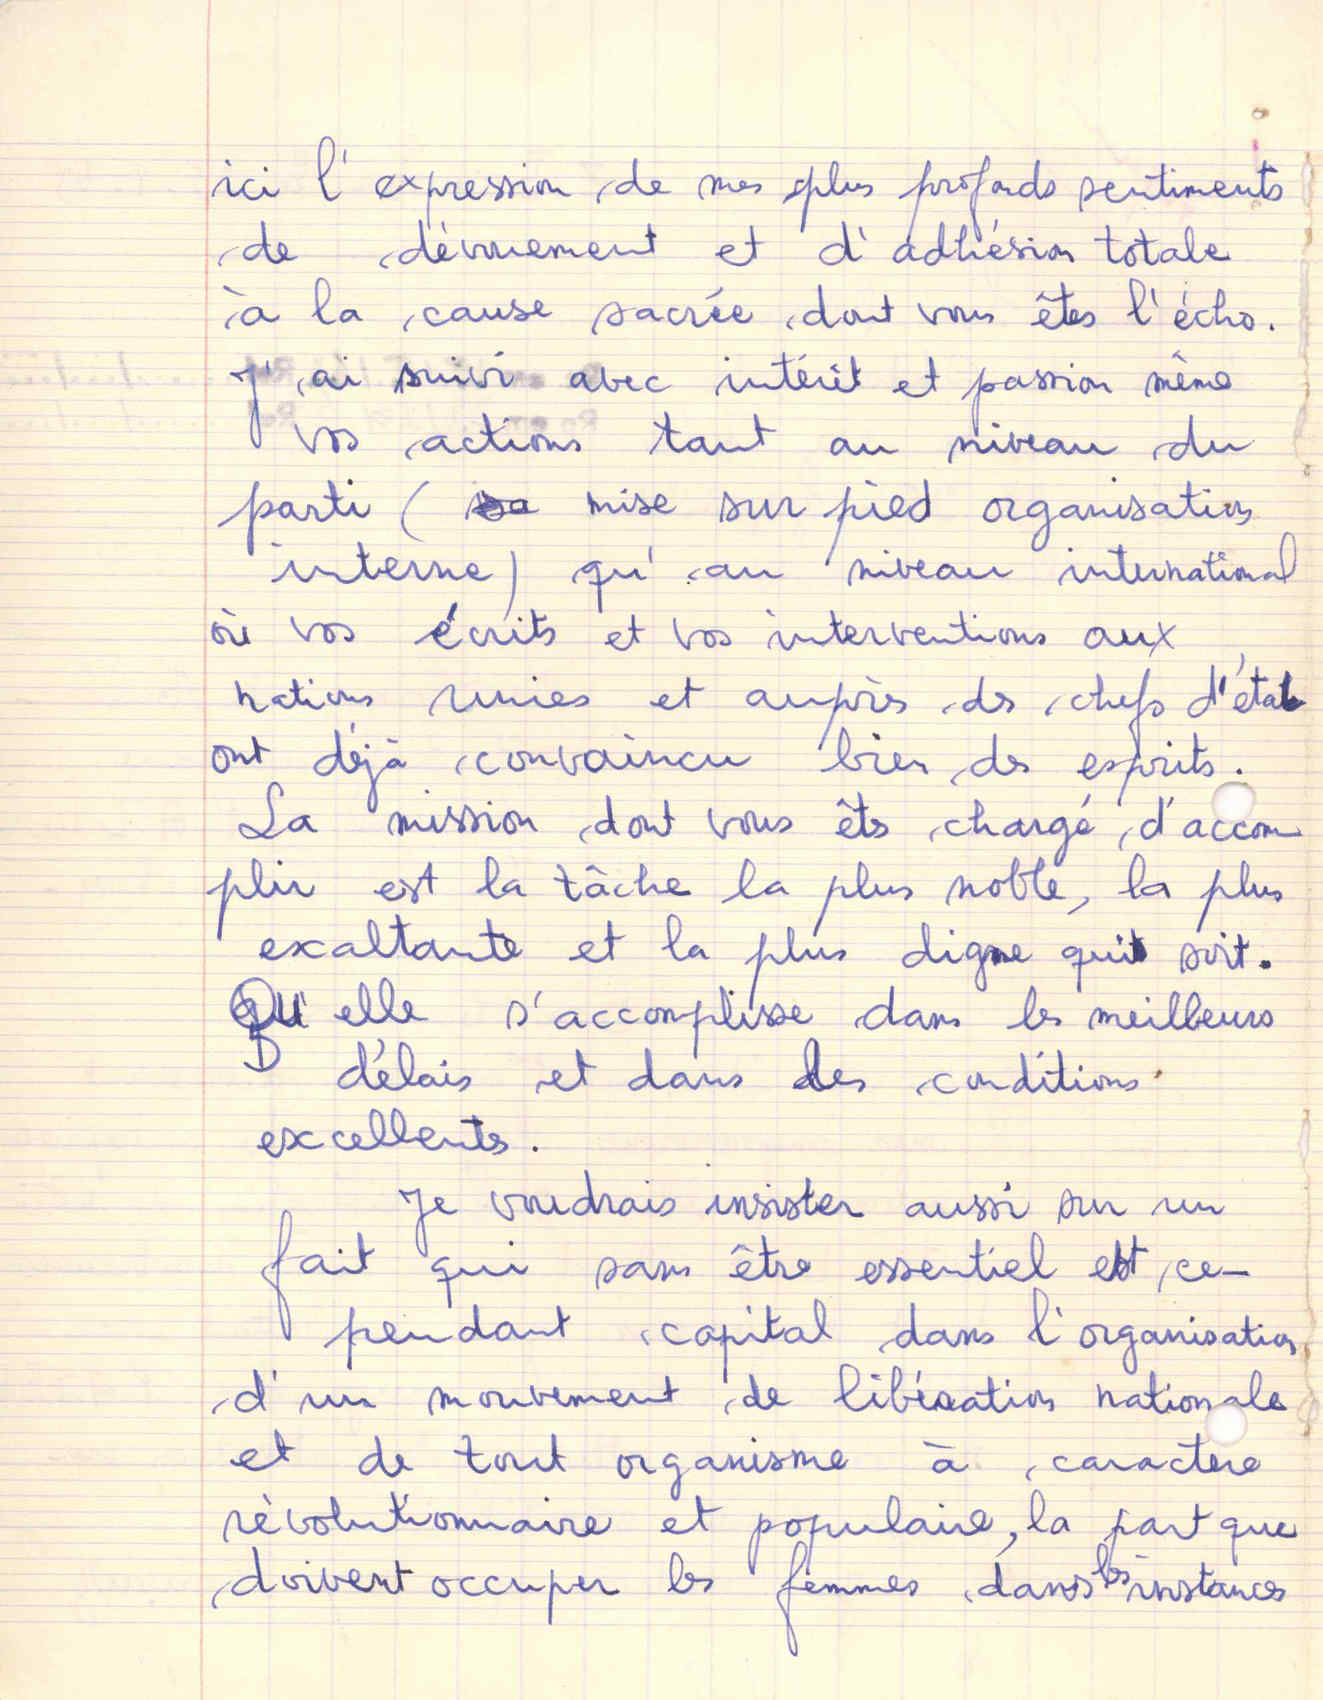 ici l'expression de mes plus profonds sentiments
de dévouement et d'adhésion totale
à la cause sacrée dont vous êtes l'écho.
J'ai suivi avec intérêt et passion même
vos actions tant au niveau du
parti ( mise sur pied organisation
interne) qu'au niveau international
où vos écrits et vos interventions aux
nations unies et auprès des chefs d'état
ont déjà convaincu bien des esprits.
La mission dont vous êtes chargé d'accom
plir est la tâche la plus noble, la plus
exaltante et la plus digne qui soit.
Qu'elle s'accomplisse dans les meilleurs
délais et dans des conditions
excellentes.
Je voudrais insister aussi sur un
fait qui sans être essentiel est ce-
pendant capital dans l'organisation
d'un mouvement de libération nationale
et de tout organisme à caractère
révolutionnaire et populaire, la part que
doivent occuper les femmes dans les instances